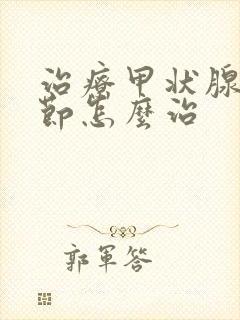 治療甲状腺
節怎麼治
郭軍答